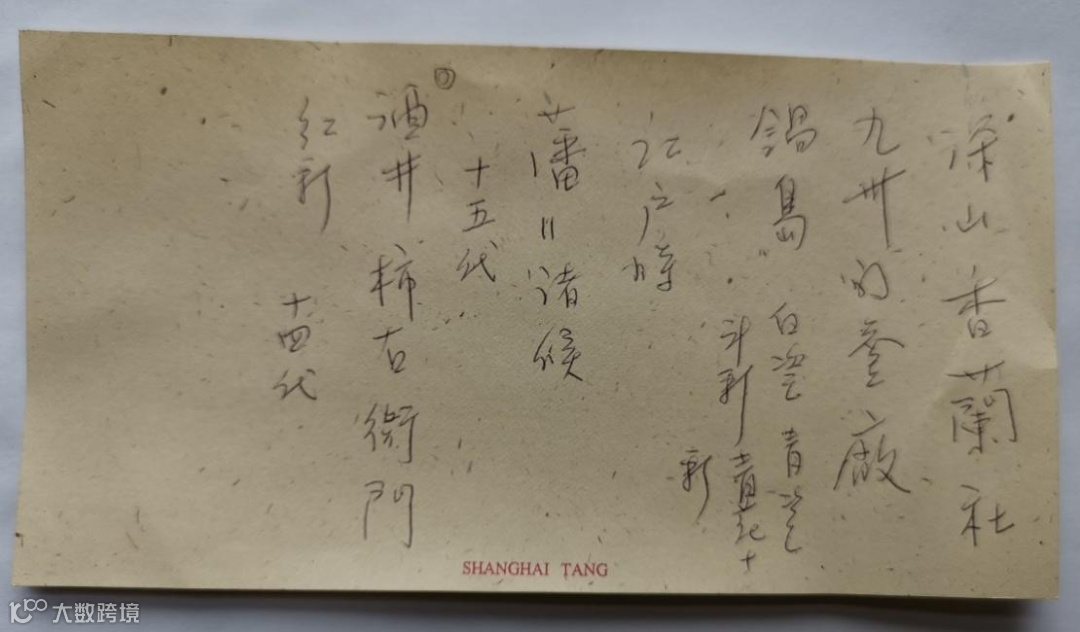 深山香蘭社
九卅的瓷廠
鍋島 白瓷 青瓷
斗彩 青花十
彩
江户時
蕃〃诸候
十五代
酒井柿右衛門
红彩 十四代
SHANGHAI TANG
大数跨境